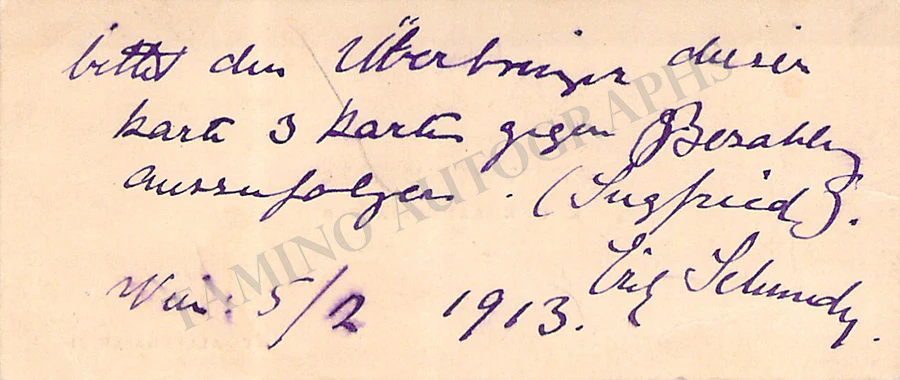 bittet den Überbringer dieser
Karte 3 Karten gegen Bezahlung
auszufolgen. (Siegfried).
Erik Schmedes.
Wien: 5/2 1913.
TAMINO AUTOGRAPHS